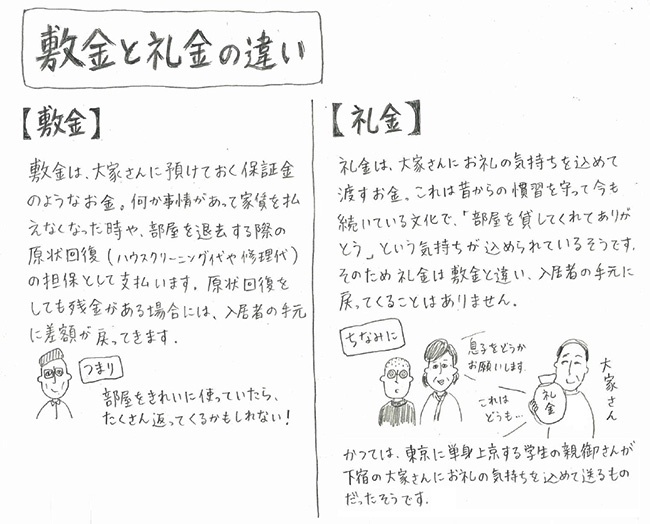 敷金と礼金の違い
【敷金】
敷金は、大家さんに預けておく保証金
のようなお金。何か事情があって家賃を払
えなくなった時や、部屋を退去する際の
原状回復(ハウスクリーニング代や修理代)
の担保として支払います。原状回復を
しても残金がある場合には、入居者の手元
に差額が戻ってきます。
つまり
部屋をきれいに使っていたら、
たくさん返ってくるかもしれない!
【礼金】
礼金は、大家さんにお礼の気持ちを込めて
渡すお金。これは昔からの慣習を守って今も
続いている文化で、「部屋を貸してくれてありが
とう」という気持ちが込められているそうです。
そのため礼金は敷金と違い、入居者の手元に
戻ってくることはありません。
ちなみに
息子をどうか
お願いします。
これは
どうも…
礼金
大家さん
かつては、東京に単身上京する学生の親御さんが
下宿の大家さんにお礼の気持ちを込めて送るもの
だったそうです。